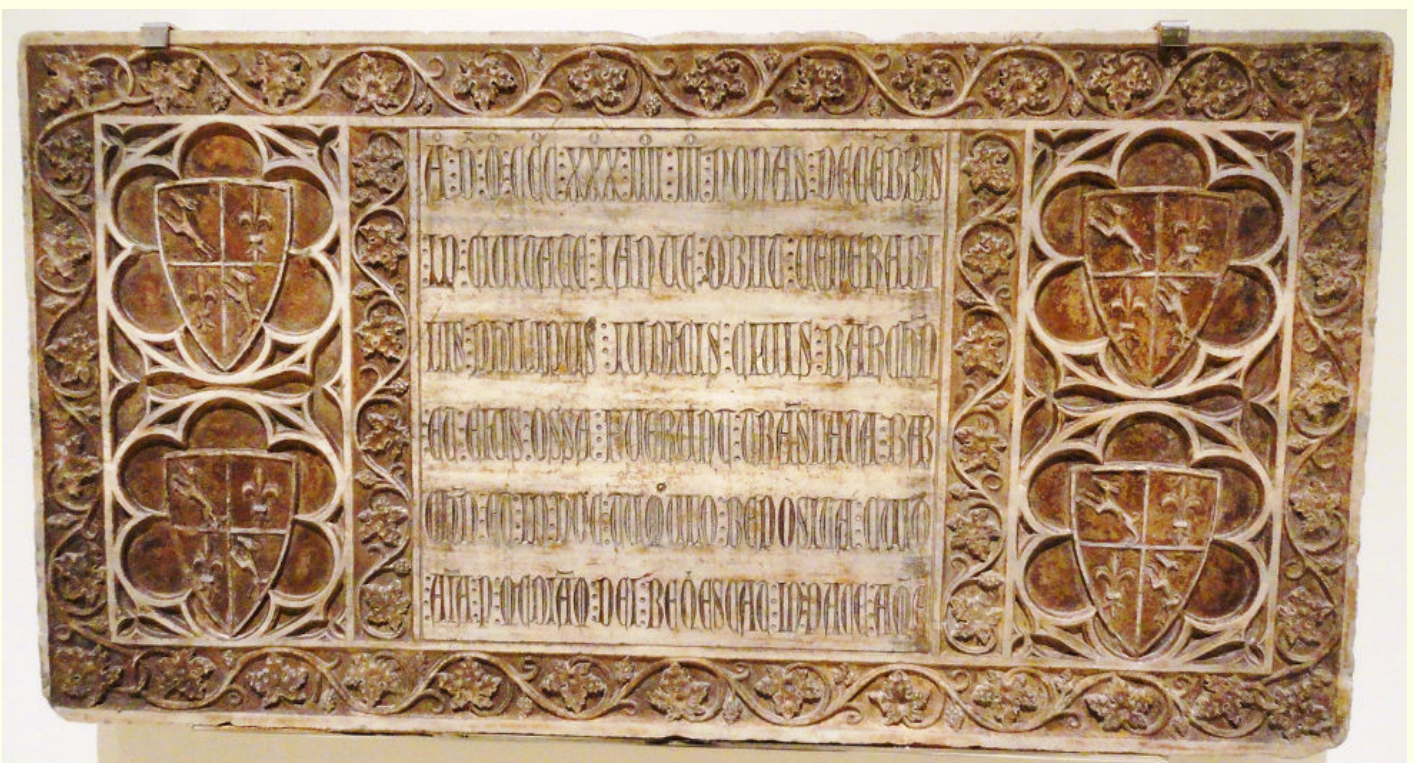 A : D : M : CCC : XXX : IIII : III : NONAS : DECEBRIS
IN : CIVITATE : IANUE : OBIIT : VENERABI
LIS : PHILIPUS : IUDICIS : CIVIS : BARCHN
ET : EIUS : OSSA : FUERUNT : TRANSLATA : BAR
CHN : ET : IN : HOC : TUMULO : REPOSITA : CUIUS
AIA : P : MIAM : DEI : REQESCAT : IN : PACE : AMEN